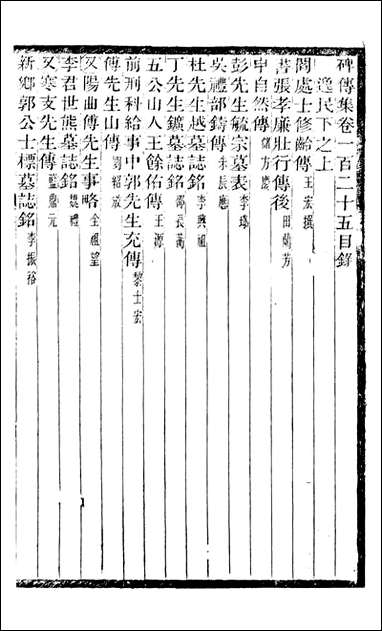 碑傳集卷一百二十五目錄
逸民下之上
閻處士修齡傳 王宏撰
書張孝廉壯行傳後 田蘭芳
申自然傳 儲方慶
彭先生毓宗墓表 李璐
吳禮部鑄傳 朱辰應
杜先生越墓誌銘 李興祖
丁先生鑛墓誌銘 邵長蘅
五公山人王餘佑傳 王源
前刑科給事中郭先生充傳 黎士宏
傅先生山傳 劉紹攽
又陽曲傅先生事略 全祖望
李君世熊墓誌銘 禮
又寒支先生傳 藍鼎元
新鄉郭公士標墓誌銘 李振裕